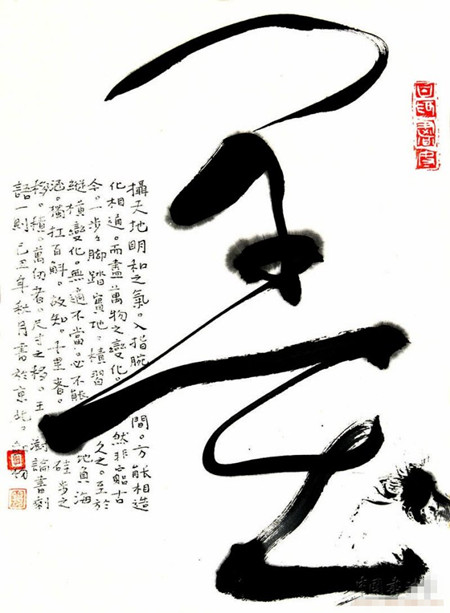 攝天地明和之氣。入指腕間。方能相造
化相通。而盡萬物之變化。然非窮古
今。一步々腳踏實地。積習久之。至於
縱橫變化。無適不當。必不能地負海
涵。獨扛百斛。故知。千里者。硅步之
移。積。萬仞者。尺寸之移。王澍論書剩
語一則己丑年秋月書於京北